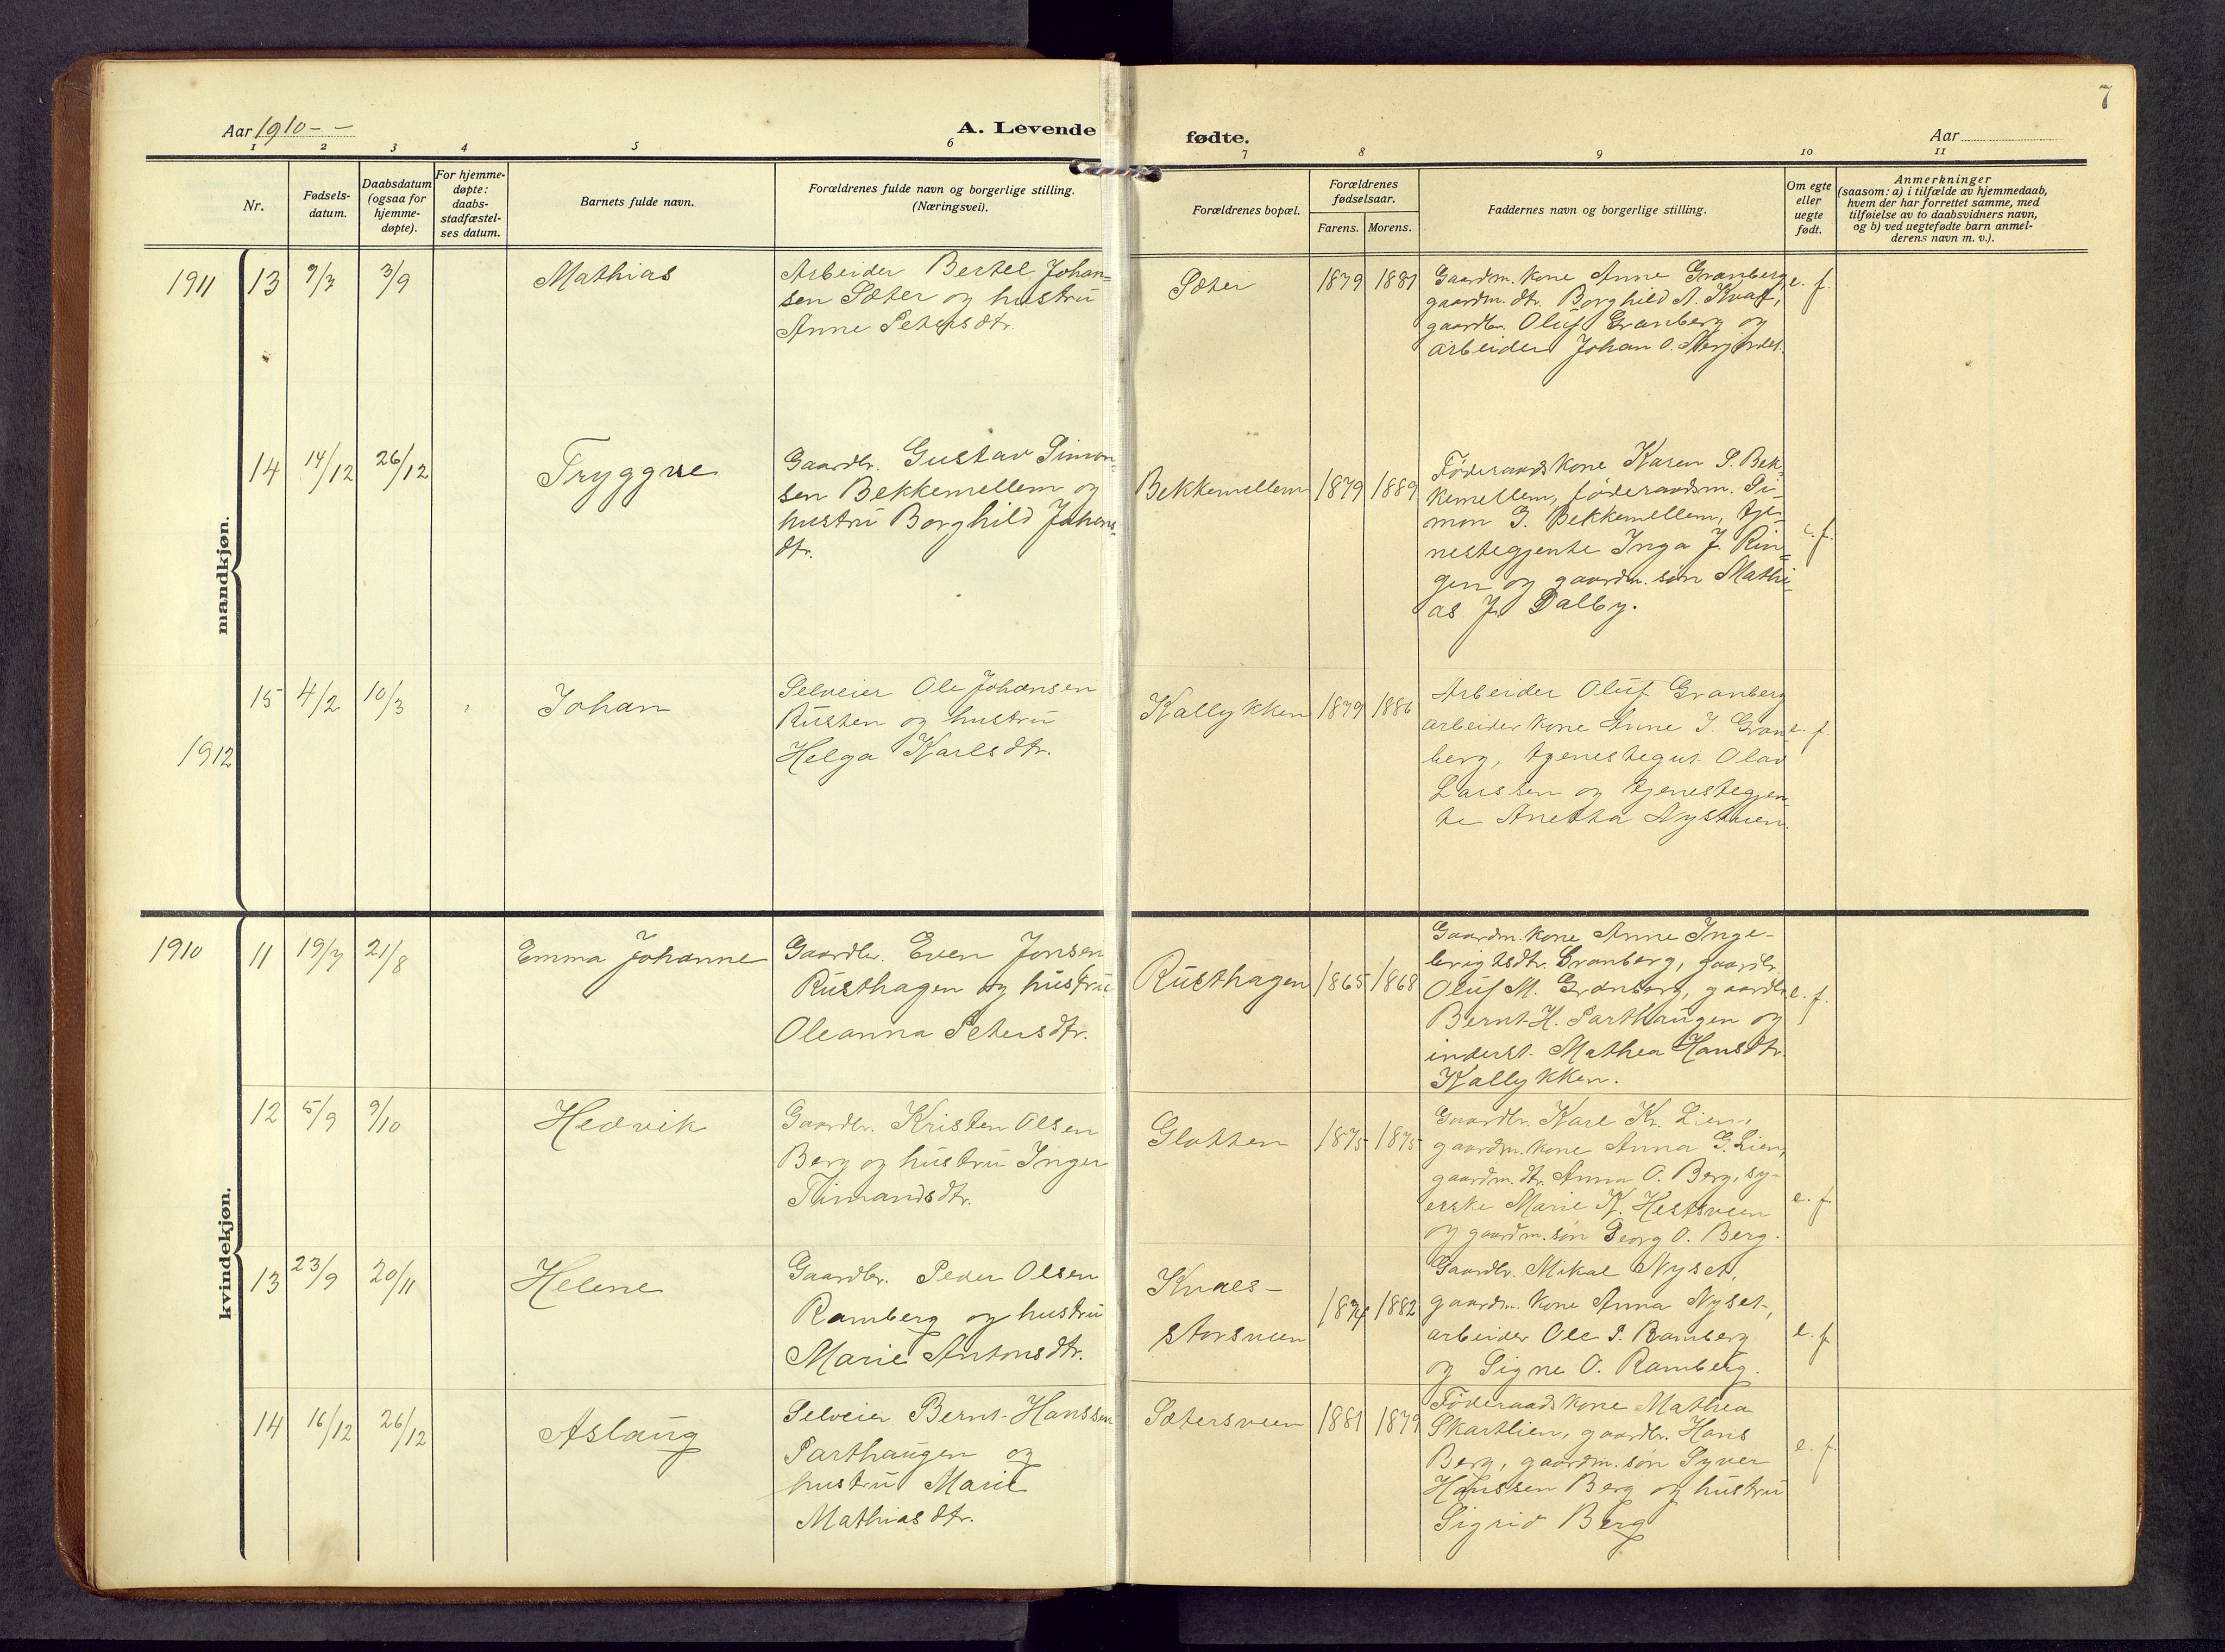 7
Aar 1910 - -
A. Levende
fødte.
Aar
1 2 3 4 5 6 7 8 9 10 11
Nr.
Fødsels-
datum.
Daabsdatum
(ogsaa for
hjemme-
døpte).
For hjemme-
døpte:
daabs-
stadfæstel-
ses datum.
Barnets fulde navn.
Forældrenes fulde navn og borgerlige stilling.
(Næringsvei).
Forældrenes bopæl.
Forældrenes
fødselsaar.
Farens. Morens.
Faddernes navn og borgerlige stilling.
Om egte
eller
uegte
født.
Anmerkninger
(saasom: a) i tilfælde av hjemmedaab,
hvem der har forrettet samme, med
tilføielse av to daabsvidners navn,
og b) ved uegtefødte barn anmel-
derens navn m. v.).
mandkjøn.
1911 13 9/7 3/9
Mathias
Arbeider Bertel Johan=
sen Sæter og hustru
Anne Petersdtr.
Sæter
1879 1881
Gaardm. kone Anne Granberg
gaardm. dtr. Borghild A.
gaardbr. Oluf Granberg og
arbeider Johan O.
e. f.
14 14/12 26/12
Tryggve
Gaardbr. Gustav Simon=
sen Bekkemellem og
hustru Borghild Johans=
dtr.
Bekkemellem
1879 1889
Föderaadskone Karen S. Bek=
kemellem, föderaadsm. Si-
mon G. Bekkemellem, tje-
nestegjente Inga J. Rin=
gen og gaardm. sön Mathi-
as J. Dalby.
e. f.
15 4/2 10/3
Johan
Selveier Ole Johansen
Rusten og hustru
Helga Karlsdtr.
Kallykken
1879 1886
Arbeider Oluf Granberg
arbeiderkone Anne I. Gran
berg, tjenestegut Olav
Larssen og tjenestegjen
te Anetha Nystuen.
e. f.
1912
kvindekjøn.
1910 11 19/7 21/8
Emma Johanne
Gaardbr. Even Jonsen
Rusthagen og hustru
Oleanna Petersdtr.
Rusthagen
1865 1868
Gaardm. kone Anne Inge-
brigtsdtr. Granberg, gaardbr.
Oluf M. Granberg, gaardbr.
Bernt H. Parthaugen og
inderst. Mathea Hansdtr.
Kallykken.
e. f.
12 5/9 9/10
Hedvik
Gaardbr. Kristen Olsen
Berg og hustru Inger
Timandsdtr.
Glotten
1875 1875
Gaardbr. Karl Kr. Lien,
gaardm. kone Anna G. Lien,
gaardm. dtr. Anna O. Berg, sy-
erske Marie K. Hestsveen
og gaardm. sön Georg O. Berg.
e. f.
13 23/9 20/11
Helene
Gaardbr. Peder Olsen
Ramberg og hustru
Marie Antonsdtr.
Knaes-
storsveen
1874 1882
Gaardbr. Mikal Nyset,
gaardm. kone Anna Nyset,
arbeider Ole P. Ramberg
og Signe O. Ramberg.
e. f.
14 16/12 26/12
Aslaug
Selveier Bernt Hanssen
Parthaugen og
hustru Marie
Mathiasdtr.
Sætersveen
1881 1879
Föderaadskone Mathea
Skartlien, gaardbr. Hans
Berg, gaardm. sön Syver
Hanssen Berg og hustru
Sigrid Berg
e. f.